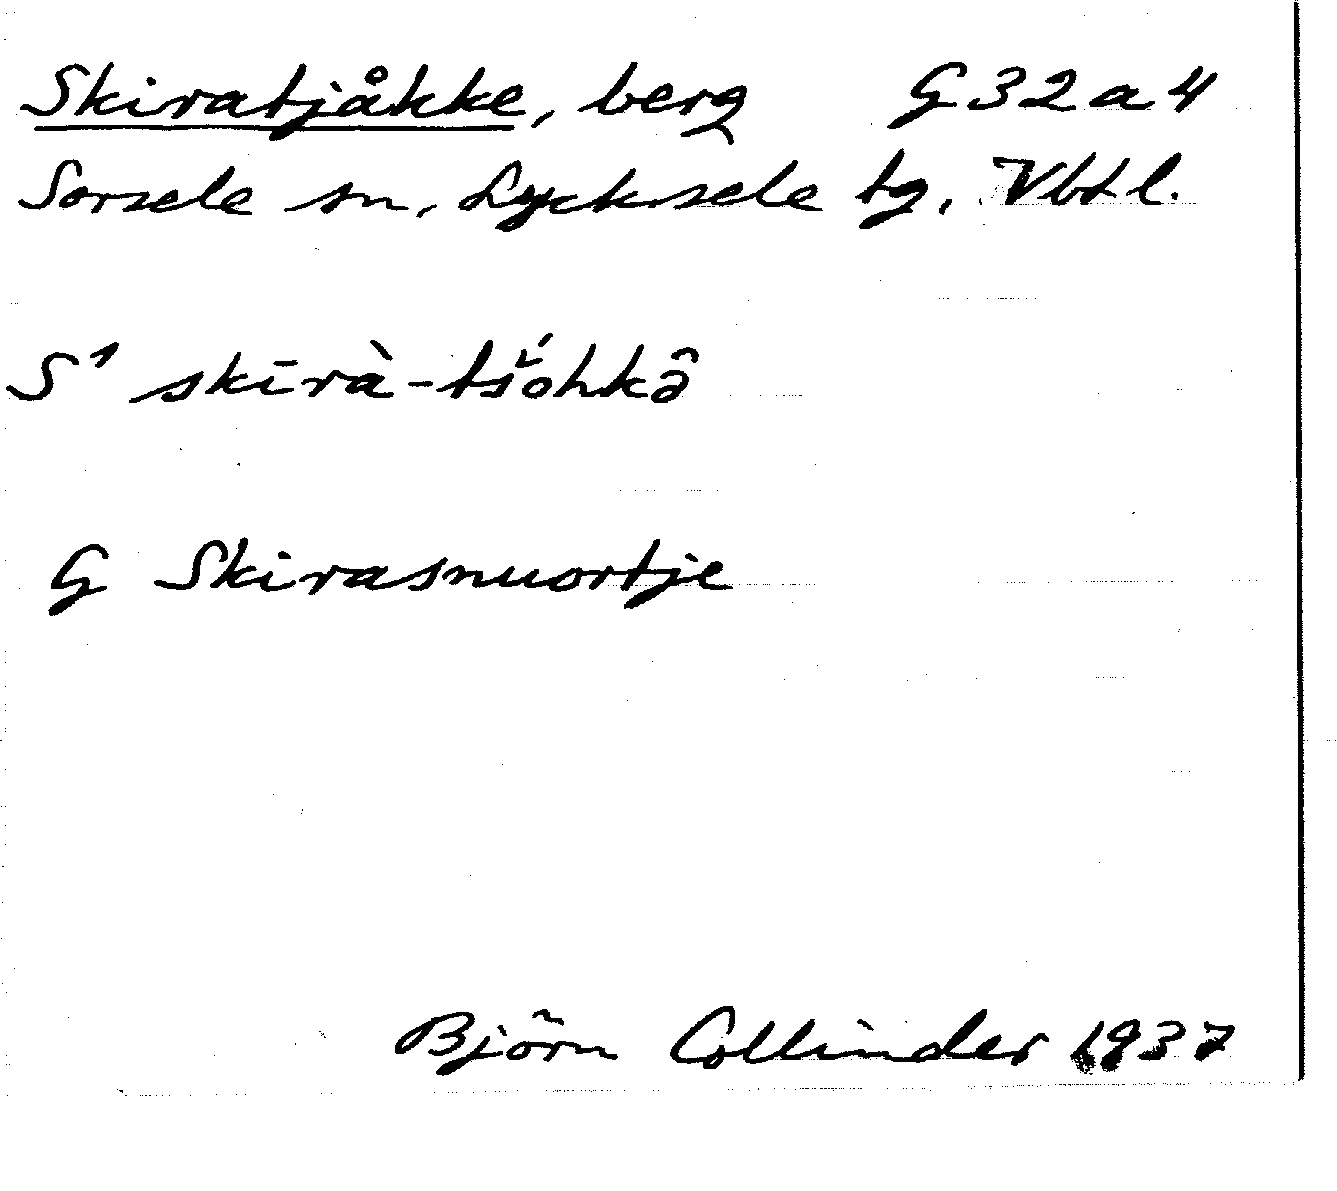 Skiratjåkke, berg G32a4
Sorsele sn, Lycksele tg, Vbtl.
S¹ skīrà-tš́ohkâ
G Skirasnuortje
Björn Collinder 1937